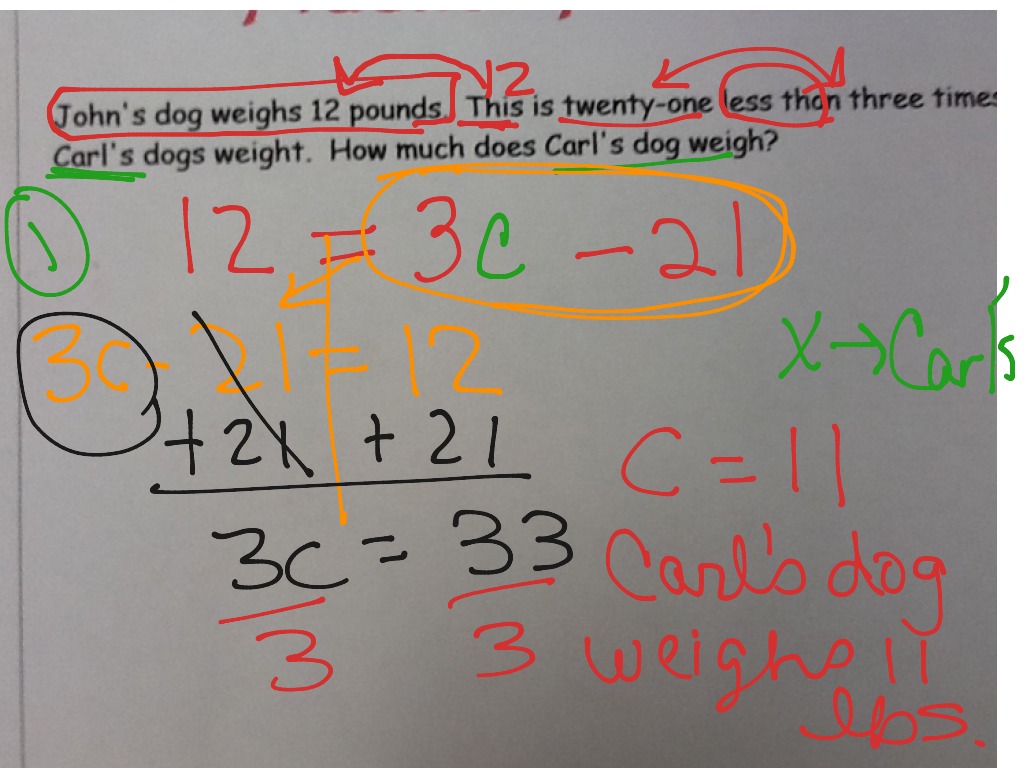 John's dog weighs 12 pounds. This is twenty-one less than three times
12
Carl's dogs weight. How much does Carl's dog weigh?
1) 12 = 3c - 21
3c - 21 = 12
x → Carl's
+ 21 + 21
c = 11
3c = 33
3 3
Carl's dog
weighs 11
lbs.